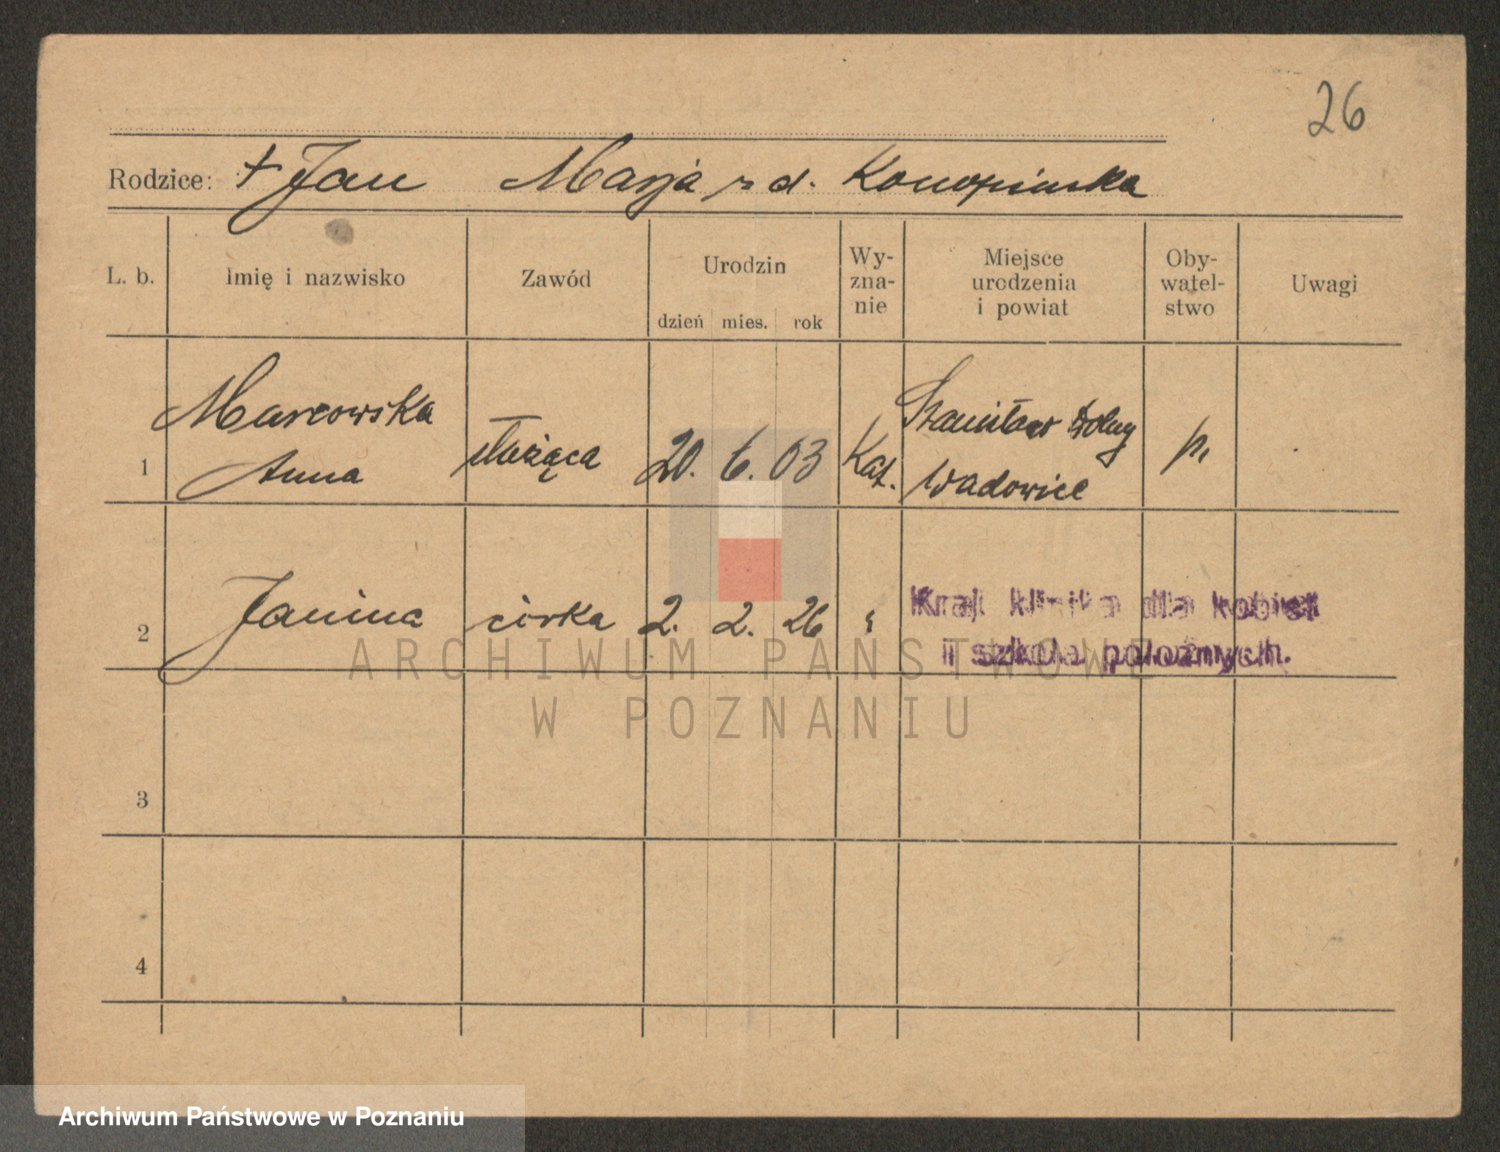 26
Rodzice: + Jan Marja r d. Konopinska
L. b. Imię i nazwisko Zawód Urodzin dzień mies. rok Wy-zna-nie Miejsce urodzenia i powiat Oby-watel-stwo Uwagi
1 Marcowska Anna służąca 20. 6. 03 Kat. Stanisław Dolny Wadowice p.
2 Janina córka 2. 2. 26 Kraj. klinika dla kobiet
i szkoła położnych.
ARCHIWUM PAŃSTWOWE
W POZNANIU
3
4
Archiwum Państwowe w Poznaniu